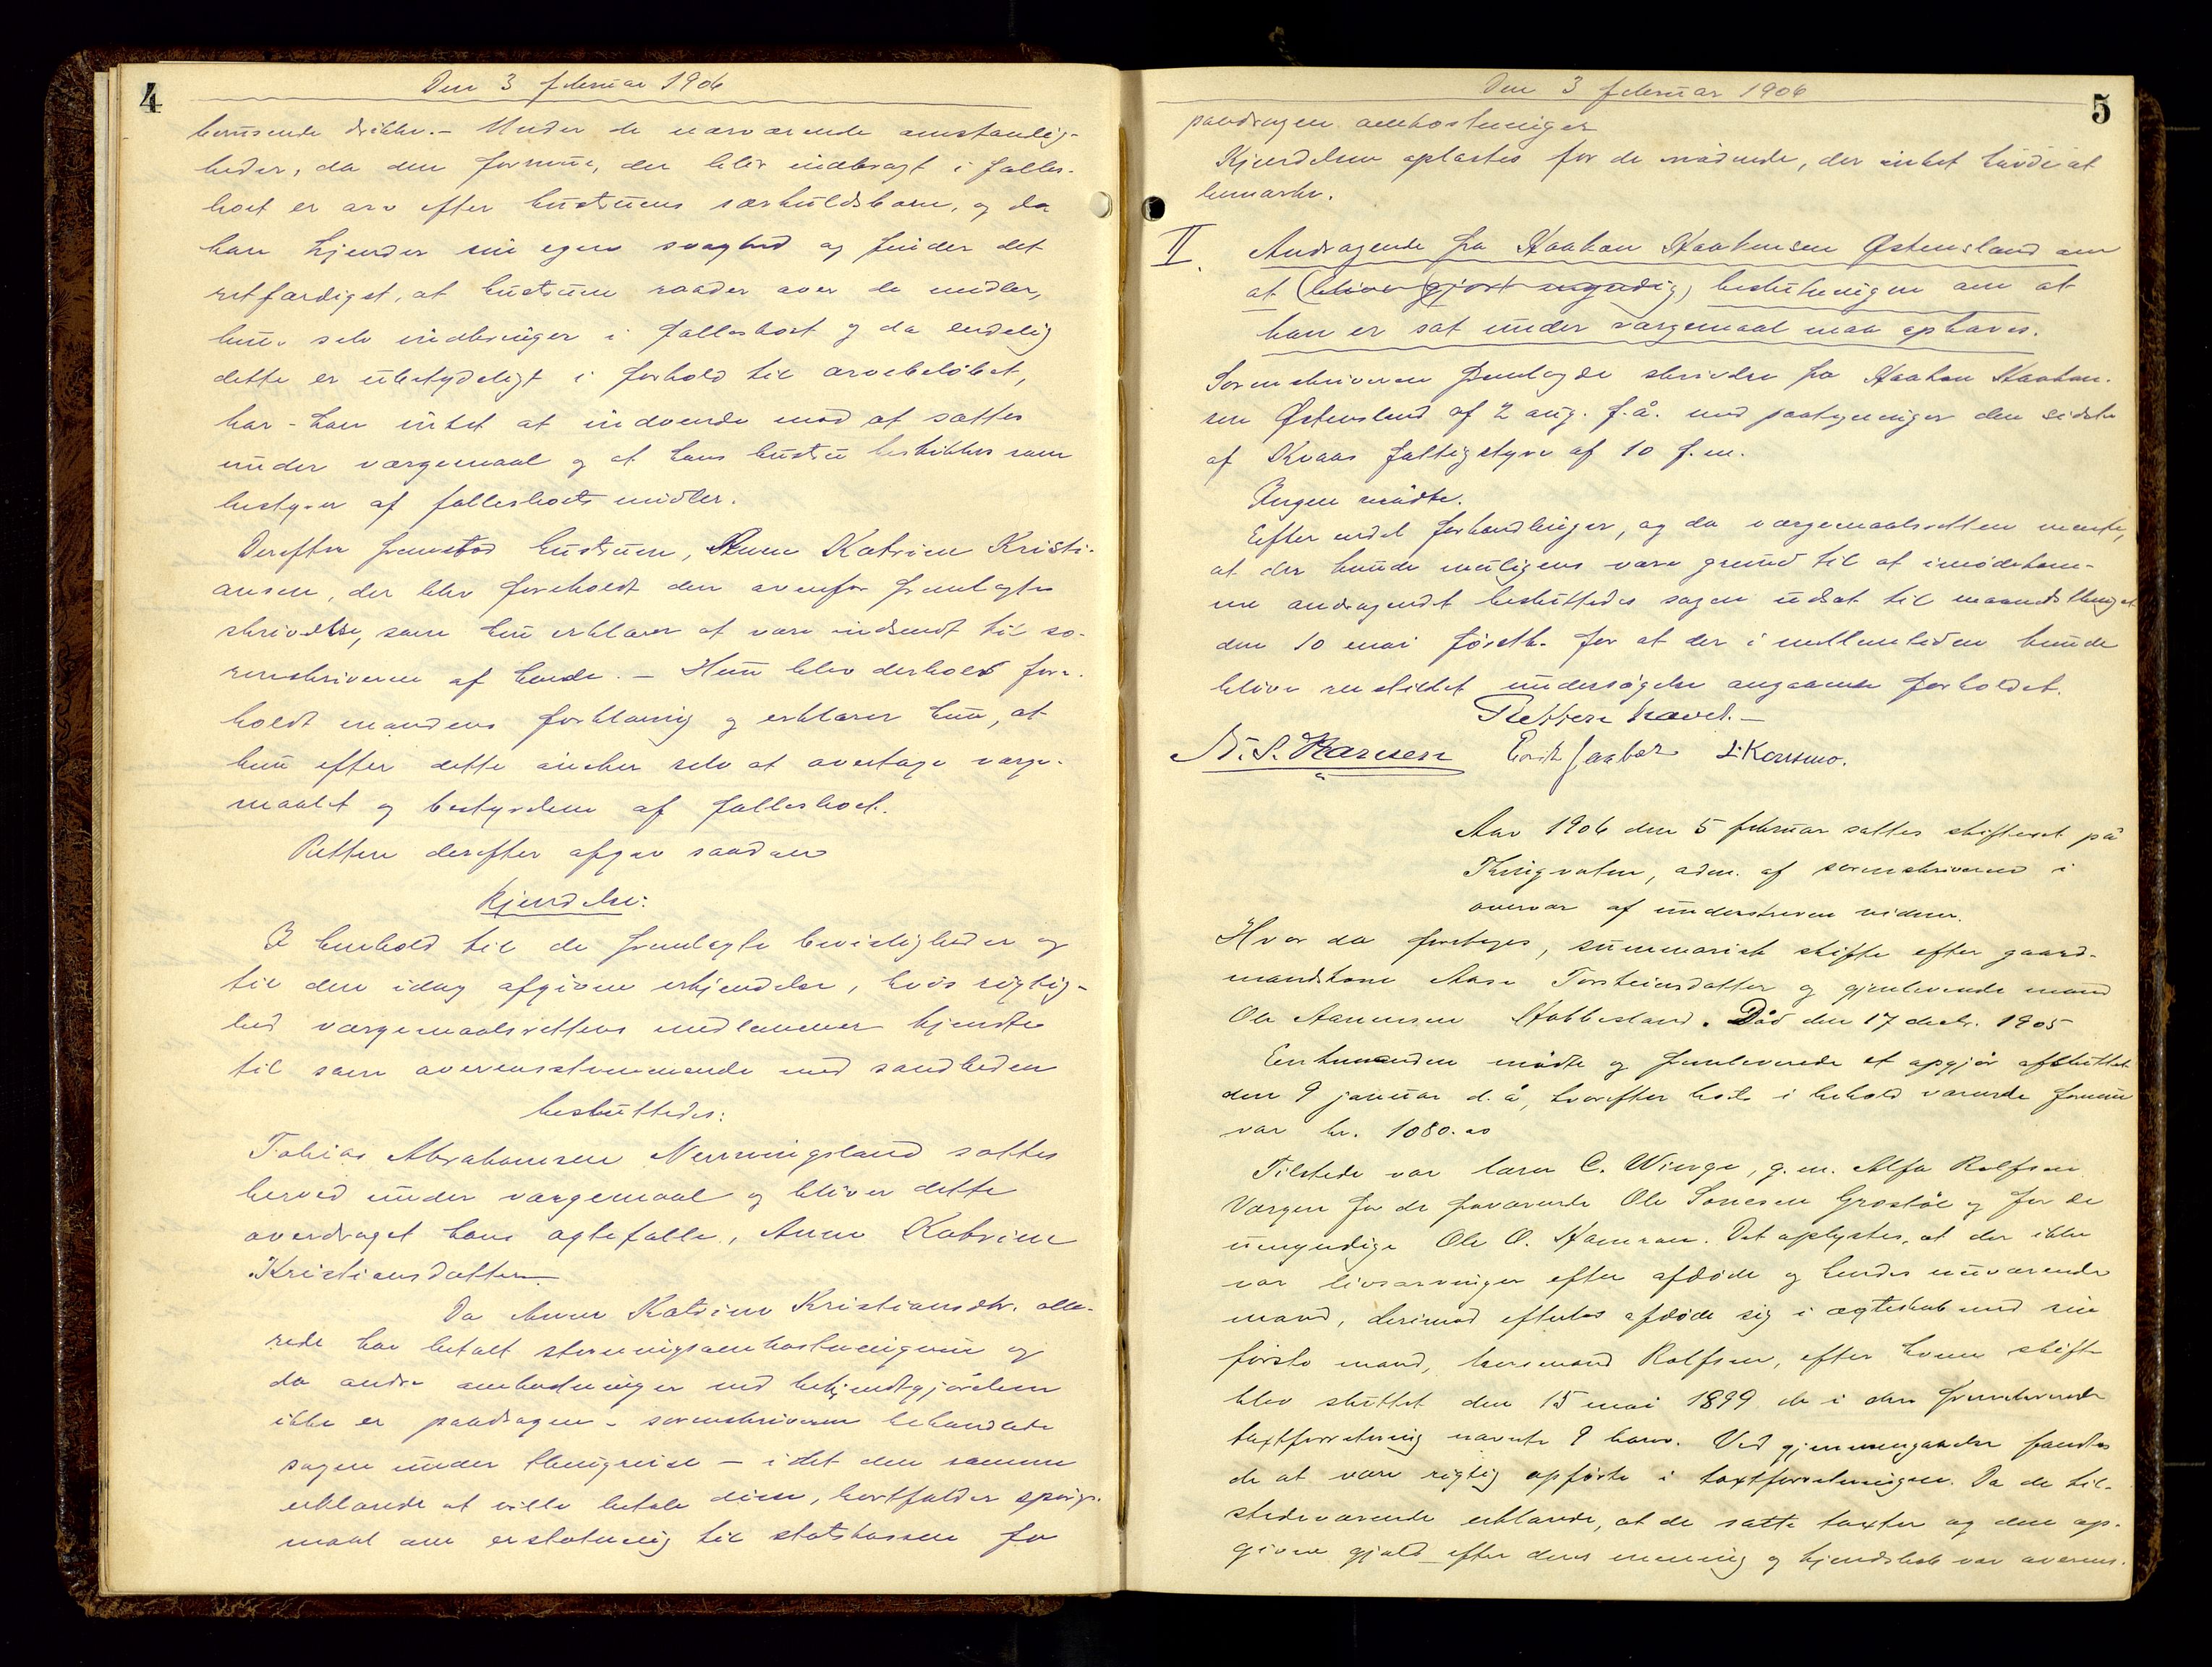 4
Den 3 februar 1906
berusende drikke. – Under de nærværende omstændig-
heder, da den formue, der blev indbragt i fælles-
boet er arv efter hustruens særkuldsbarn, og da
han kjender sin egen svaghed og finder det
retfærdigst, at hustruen raader over de midler,
hun selv indbringer i fællesboet og da endelig
dette er ubetydeligt i forhold til arvebeløbet,
har han intet at indvende mod at sættes
under værgemaal og at hans hustru beskikkes som
bestyrer af fællesboets midler.
Derefter fremstod hustruen, Anne Katrine Kristi-
ansen, der blev foreholdt den ovenfor fremlagte
skrivelse, som hun erklærer at være indsendt til so-
renskriveren af hende. – Hun blev derhos fore-
holdt mandens forklaring og erklærer hun, at
hun efter dette ønsker selv at overtage værge-
maalet og bestyrelsen af fællesboet.
Retten derefter afgav saadan
Kjendelse:
I henhold til de fremlagte bevisligheder og
til den idag afgivne erkjendelse, hvis rigtig-
hed værgemaalsrettens medlemmer kjendte
til som overensstemmende med sandheden
besluttedes:
Tobias Abrahamsen Nerringsland sættes
herved under værgemaal og bliver dette
overdraget hans ægtefælle, Anne Katrine
Kristiansdatter.
Da Anne Katrine Kristiansdtr. alle-
rede har betalt stevningsomkostningerne og
da andre omkostninger ved bekjendtgjørelsen
ikke er paadragen – sorenskriveren behandlede
sagen under thingreise – idet den samme
erklærede at ville betale disse, bortfalder spørgs-
maal om erstatning til statskassen for
5
Den 3 februar 1906
paadragen omkostninger
Kjendelsen oplæstes for de mødende, der intet havde at
bemærke.
II. Andragende fra Haakon Haakonsen Østensland om
at (bliver gjort myndig) beslutningen om at
han er sat under værgemaal maa ophæves.
Sorenskriveren fremlagde skrivelse fra Haakon Haakon-
sen Østensland af 2 aug. f.å. med paategninger den sidste
af Kvaas fattigstyre af 10 f.m.
Ingen mødte.
Efter endel forhandlinger, og da værgemaalsretten mente,
at der kunde muligens være grund til at imødekom-
me andragendet besluttedes sagen udsat til maanedsthinget
den 10 mai førstk. for at der i mellemtiden kunde
blive anstillet undersøgelse angaaende forholdet.
Retten hævet. –
N. S. Hansen L. Konsmo.
Aar 1906 den 5 februar sattes skifteret på
Thingvatn, adm. af sorenskriveren i
overvær af underskrevne vidner.
Hvor da foretoges, summarisk skifte efter gaard-
mandskone Aase Torsteinsdatter og gjenlevende mand
Ole Aanensen Stobbesland. Død den 17 decbr. 1905
Enkemanden mødte og fremleverede et opgjør afsluttet
den 9 januar d.å, hvorefter boets i behold værende formue
var kr. 1080.00
Tilstede var lærer C. Winge, g.m. Alfa Rolfsen
Værgen for de fraværende Ole Sonesen Grostøl og for de
umyndige Ole O. Kamran. Det oplystes, at der ikke
var livsarvinger efter afdøde og hendes nuværende
mand, derimod efterlod afdøde sig i ægteskab med sin
første mand, lensmand Rolfsen, efter hvem skifte
blev sluttet den 15 mai 1899 de i den fremleverede
taxtforretning nævnte 9 børn. Ved gjennemgaaelse fandtes
de at være rigtig opførte i taxtforretningen. Da de til-
stedeværende erklærede, at de satte taxter og den op-
givne gjæld efter deres mening og kjendskab var overens-